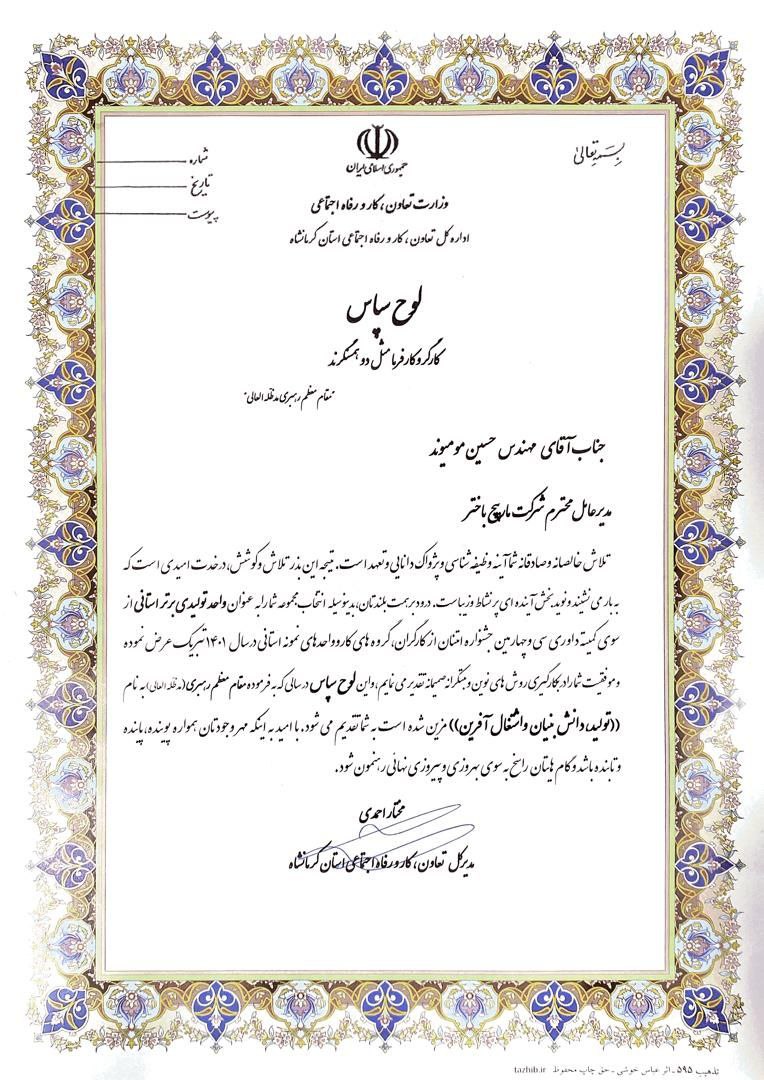 بسمه تعالی
جمهوری اسلامی ایران
شماره
تاریخ
پیوست
وزارت تعاون، کار و رفاه اجتماعی
اداره کل تعاون، کار و رفاه اجتماعی استان کرمانشاه
لوح سپاس
کارگر و کارفرما مثل دو همسنگرند
"مقام معظم رهبری مدظله العالی"
جناب آقای مهندس حسین مومیوند
مدیرعامل محترم شرکت مارپیچ باختر
تلاش خالصانه و صادقانه شما آینه وظیفه شناسی و پژواک دانایی و تعهد است. نتیجه این بذر تلاش و کوشش، درخت امیدی است که
به بار می نشیند و نوید بخش آینده ای پر نشاط و زیباست. درود بر همت بلندتان، بدینوسیله انتخاب مجموعه شما را به عنوان واحد تولیدی برتر استانی از
سوی کمیته داوری سی و چهارمین جشنواره امتنان از کارگران، گروه های کار و واحدهای نمونه استانی در سال ۱۴۰۱ تبریک عرض نموده
و موفقیت شما را در بکارگیری روش های نوین و مبتکرانه صمیمانه تقدیر می نمایم، و این لوح سپاس در سالی که به فرموده مقام معظم رهبری (مدظله العالی) به نام
((تولید، دانش بنیان و اشتغال آفرین)) مزین شده است به شما تقدیم می شود. با امید به اینکه مهر وجودتان همواره پوینده، پاینده
و تابنده باشد و گام هایتان راسخ به سوی بهروزی و پیروزی نهائی رهنمون شود.
مختار احمدی
مدیرکل تعاون، کار و رفاه اجتماعی استان کرمانشاه
تذهیب ۵۹۵ ـ اثر عباس خوشی ـ حق چاپ محفوظ tazhib.ir